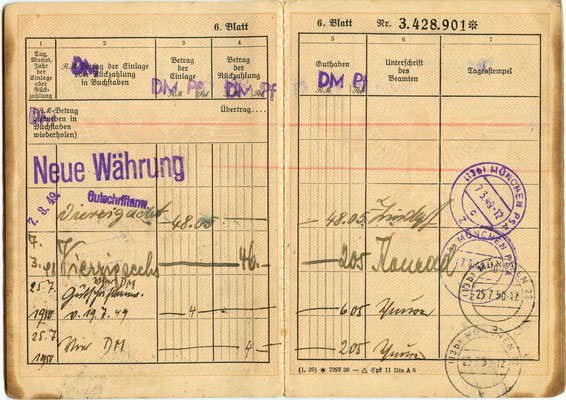 6. Blatt
1 2 3 4
Tag, Monat, Jahr der Einlage oder Rückzahlung
R.M.-Betrag der Einlage oder Rückzahlung in Buchstaben
DM
Betrag der Einlage
R.M. Rpf
DM Pf
Betrag der Rückzahlung
R.M. Rpf
DM Pf
(R.M.-Betrag zuweilen in Buchstaben wiederholen)
Übertrag....
Neue Währung
7. 3. 49.
Gutschriftanw.
Vierzigacht 48.05
7. 3. 49 Vierzigsechs 46.
25.7. 1950 vier DM Gutschriftanw. v. 19.7.49 4
25.7. 1950 Vier DM 4
6. Blatt Nr. 3.428.901*
5 6 7
Guthaben
R.M. Rpf
DM Pf
Unterschrift des Beamten
Tagesstempel
48.05
(13b) MÜNCHEN PSA
7.3.49.-12
c
2 05 Konrad
MÜNCHEN
6 05
(13b) MÜNCHEN 22
25.7.50.-12
2 05
(13b) MÜNCHEN
(1. 39) * 7297 38 — △ Epf 11 Din A 6